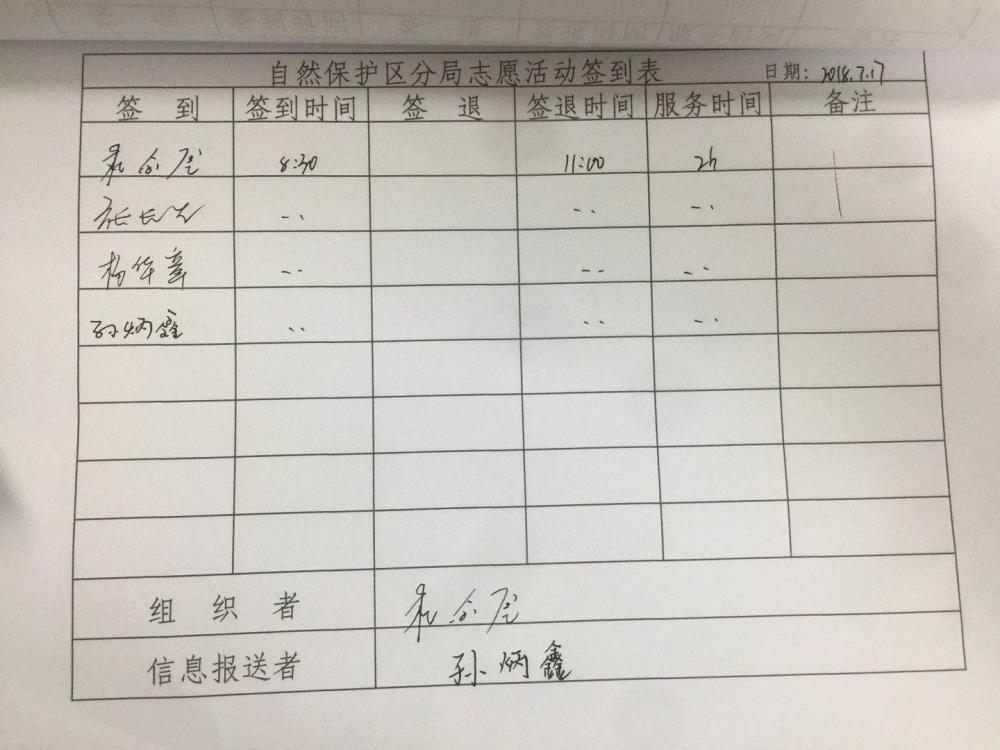 自然保护区分局志愿活动签到表 日期: 2018.7.17
签 到 签到时间 签 退 签退时间 服务时间 备注
8:30 11:00 2h
杨华章
孙炳鑫
组 织 者
信息报送者 孙炳鑫